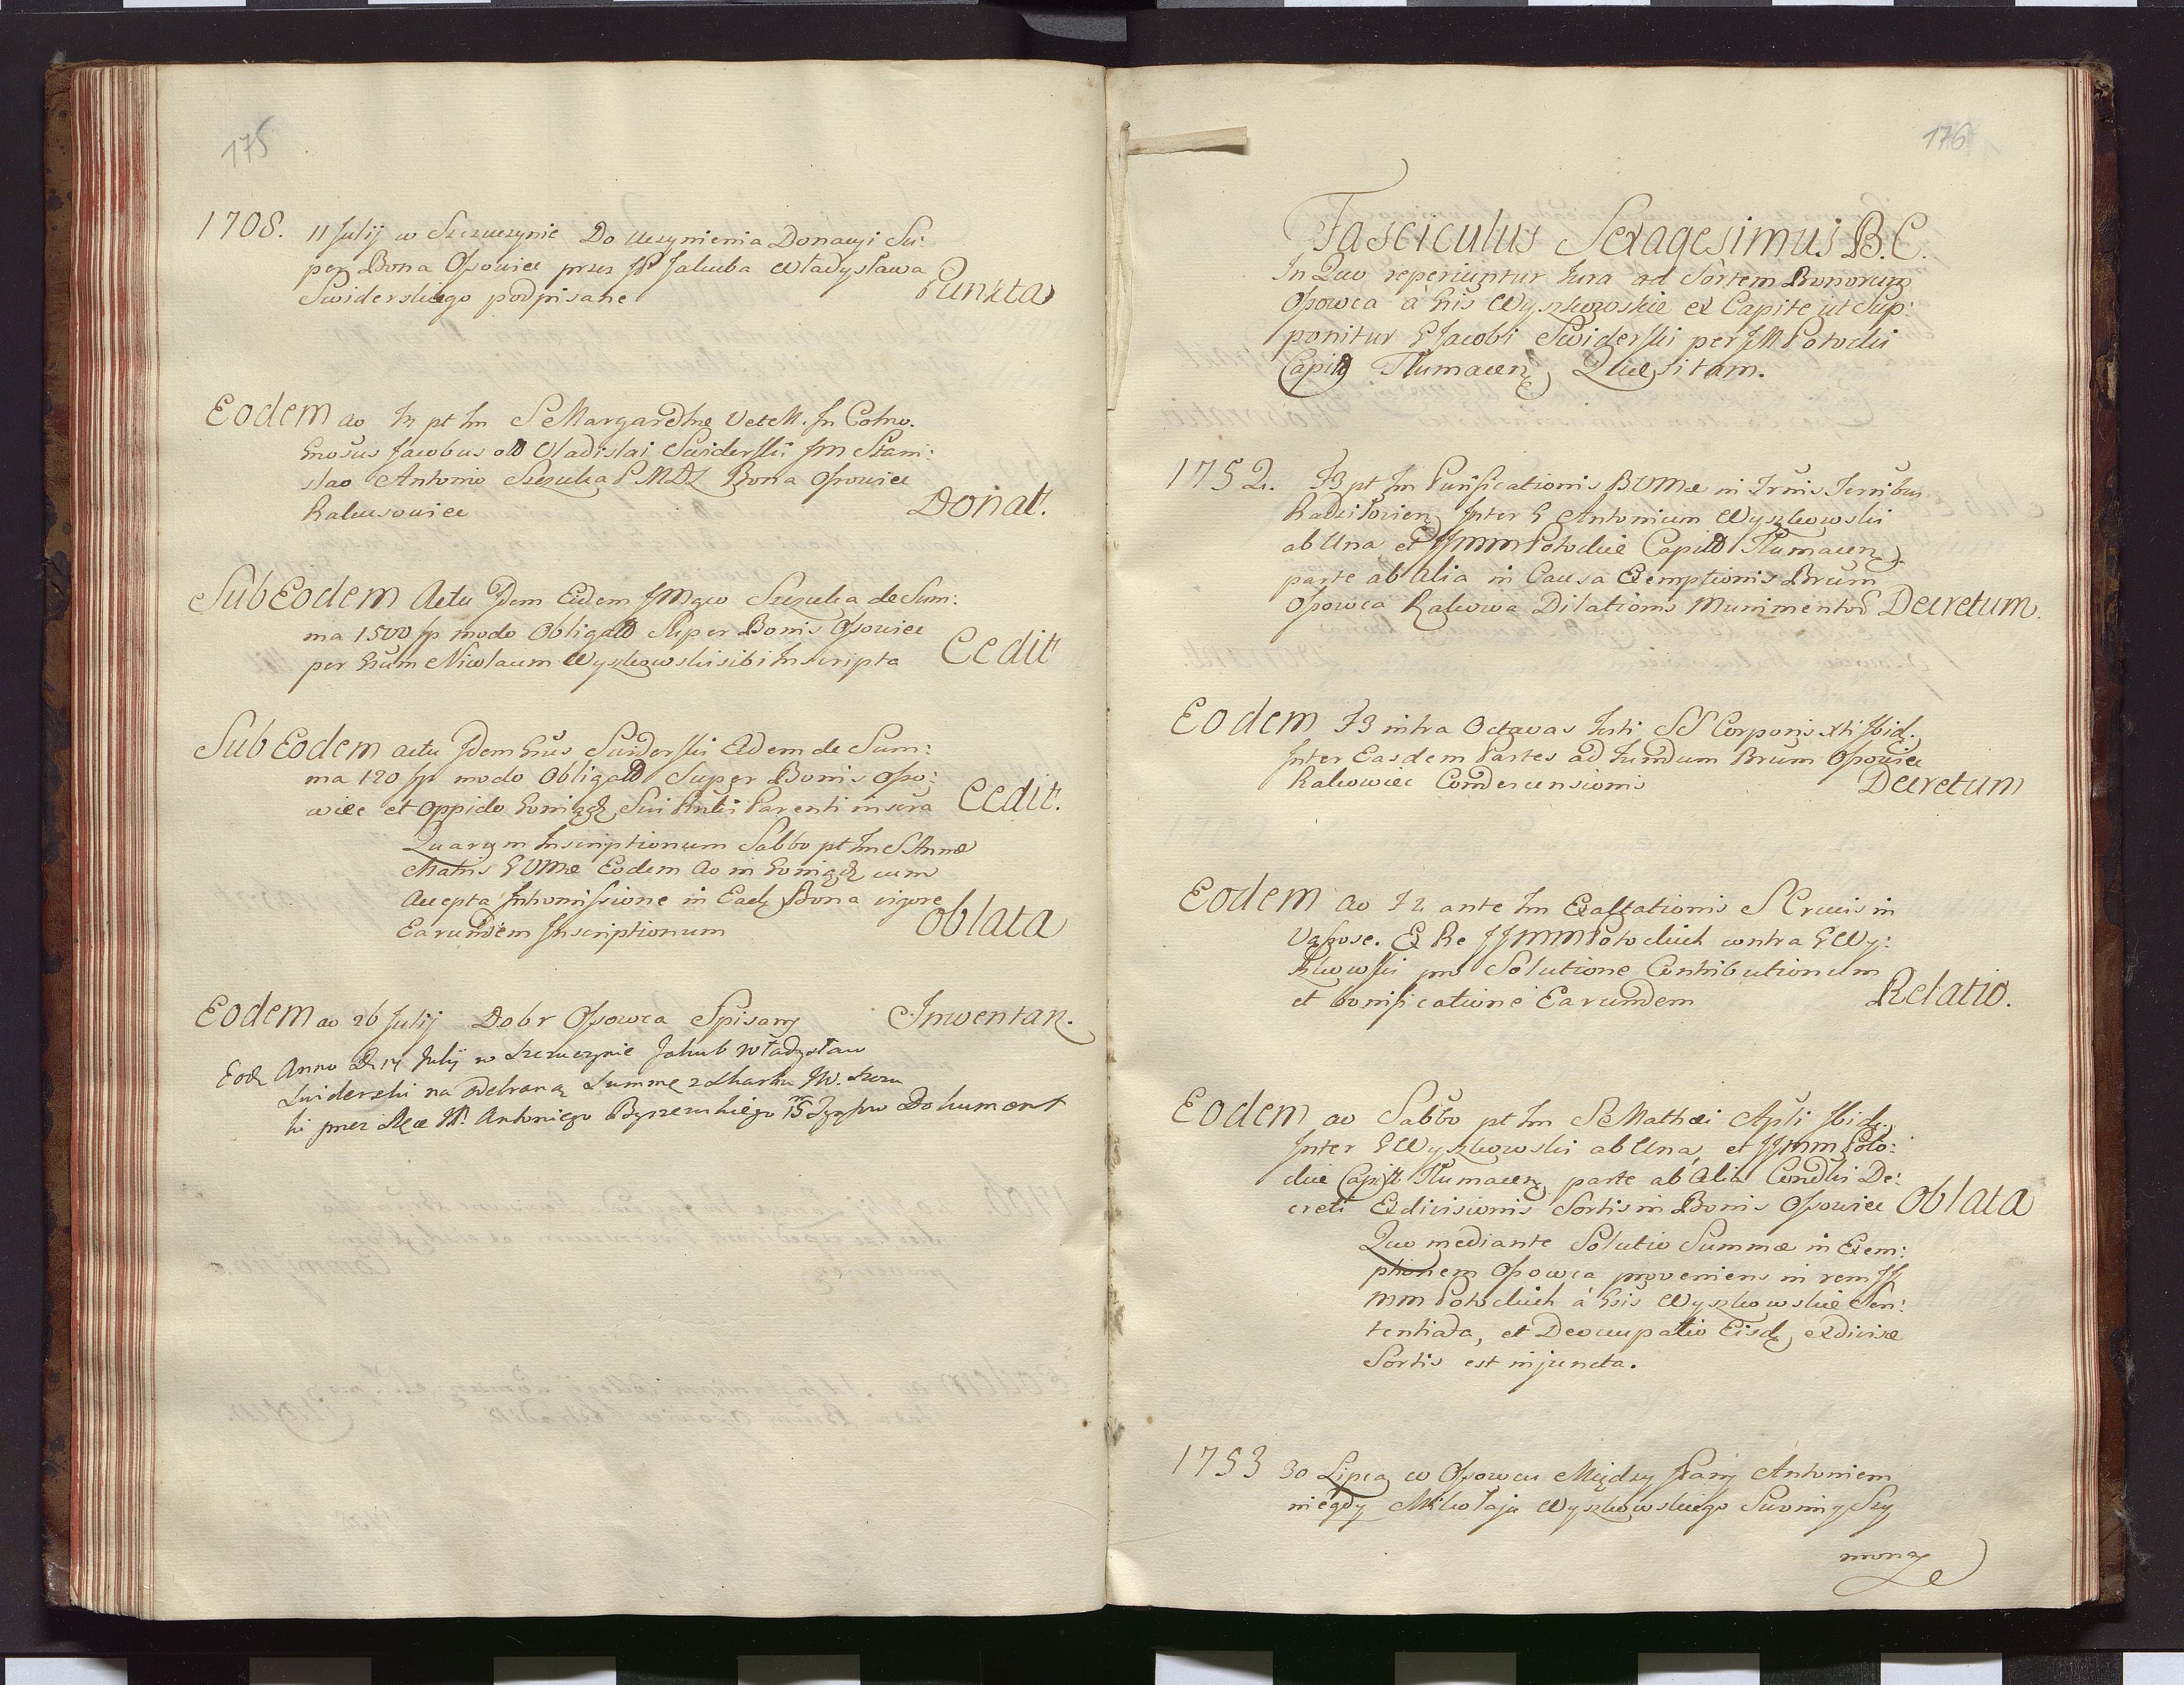 175
1708. 11 Julij w Szczuczynie Do Uczynienia Donacyi Su:
per Bona Ossowiec przez JP Jakuba Władysława
Swiderskiego podpisane Punkta
Eodem ao pt Fm S Margarethæ Vet M. In Colno.
Gnosus Jacobus olt Vladislai Swiderski Jm Stani:
slao Antonio Szczuka Bona Ossowiec
Rakusowiec Donat.
Sub Eodem Actu Idem Eidem Jmgco Szczuka de Sum:
ma 1500 fp modo Obligatt Super Bonis Ossowiec
per Gsum Nicolaum Wyszkowski sibi Inscripta Cedit
Sub Eodem actu Idem Gsus Swiderski Eidem de Sum:
ma 120 fp modo Obligatt Super Bonis Osso:
wiec et oppido Parenti inscra Cedit.
Quarum Inscriptionum Sabbo pt Fm S Annæ
Matris BVMæ Eodem Ao in cum
Accepta Intromissione in Bona vigore
Earundem Inscriptionum oblata
Eodem ao 26 Julij Dobr Ossowca Spisany Inwentarz.
Eod Anno D 14 Julij w Szczuczynie Jakub Władysław
Swiderski na odebraną Summę z Skarbu JW. Szczu
ki przez Ręce JP. Antoniego 15 Dokument
176
Fasciculus Sexagesimus B.C.
In Quo reperiuntur Jura ad Sortem Bonorum
Ossowca à Gsis Wyszkowskie ex Capite ut Sup:
ponitur G Jacobi Swiderski per JM Potocki
Capit Tlumacen Quæsitam.
1752. F3 pt Fm Purificationis BVMæ in Trnis Terribus
Radzilovien Inter G Antonium Wyszkowski
ab Una et JJmm Potockie Capitt Tlumacen
parte ab Alia in Causa Exemptionis Brum
Ossowca Rakowa Dilationis Munimentor Decretum.
Eodem F3 intra Octavas Fsti SS Corporis Xti Ibid.
Inter Easdem Partes ad Fundum Brum Ossowiec
Rakowiec Condescensionis Decretum
Eodem ao ante Fm Exaltationis S Crucis in
Vąsose. Ex Re JJmm Potockich contra G Wy:
szkowski pro Solutione Contributionum
et bonificatione Earundem Relatio.
Eodem ao Sabbo pt Fm S Mathæi Apli Ibid.
Inter G Wyszkowski ab Una, et JJmm Poto:
ckie Capitt Tlumacen parte ab Alia Condlis De:
creti Exdivisionis Sortis in Bonis Ossowiec Oblata
Quo mediante Solutio Summæ in Exem:
ptionem Ossowca proveniens in rem JJ
mm Potockich à Gsis Wyszkowskie Sen:
tentiata, et Deoccupatio Eisd exdivisæ
Sortis est injuncta.
1753 30 Lipca w Ossowcu Między Panij Antoniem
niegdy Mikołaja Wyszkowskiego Synem y Szy
mona